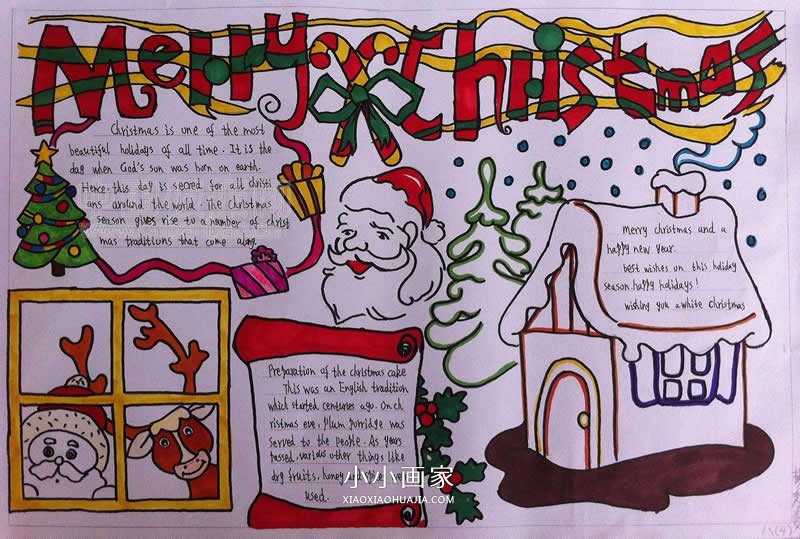 Merry Christmas
Christmas is one of the most
beautiful holidays of all time. It is the
day when God's sun was born on earth.
Hence, this day is secred for all christi
ans around the world. The christmas
season gives rise to a number of christ
mas traditions that come along.
merry christmas and a
happy new year.
best wishes on this holiday
season. happy holidays!
wishing you a white christmas
Preparation of the christmas cake
This was an English tradition
which started centuries ago. On ch
ristmas eve, Plum porridge was
served to the people. As years
passed, various other things like
dry fruits, honey
used.
小小画家
XIAOXIAOHUAJIA.COM